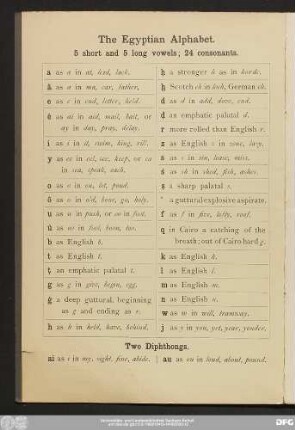 The Egyptian Alphabet.
5 short and 5 long vowels; 24 consonants.
a as a in at, had, back.
ā as a in ma, car, father.
e as e in end, letter, held.
ē as ai in aid, mail, bait, or
ay in day, pray, delay.
i as i in it, realm, king, sill.
y as ee in eel, see, keep, or ea
in sea, speak, each.
o as o in on, lot, pond.
ō as o in old, bone, go, holy.
u as u in push, or oo in foot.
ū as oo in fool, boon, too.
b as English b.
t as English t.
ṭ an emphatic palatal t.
g as g in give, begin, egg.
ġ a deep guttural, beginning
as g and ending as r.
h as h in held, have, behind.
ḥ a stronger h as in horde.
ḫ Scotch ch in loch, German ch.
d as d in add, dove, end.
ḍ as emphatic palatal d.
r more rolled than English r.
z as English z in zone, lazy.
s as s in sin, base, mist.
š as sh in shed, fish, ashes.
ṣ a sharp palatal s.
' a guttural explosive aspirate.
f as f in fire, lofty, roof.
q in Cairo a catching of the
breath; out of Cairo hard g.
k as English k.
l as English l.
m as English m.
n as English n.
w as w in will, tramway.
j as y in yon, yet, year, yonder.
Two Diphthongs.
ai as i in my, sight, fine, abide.
au as ou in loud, about, pound.
SLUB
DFG